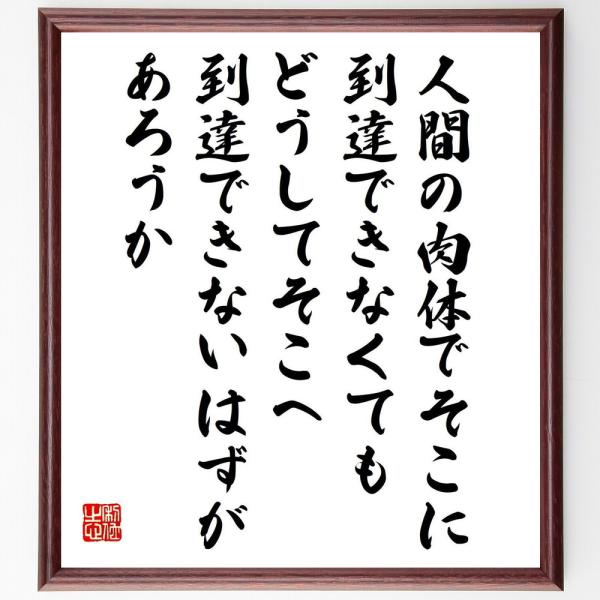 人間の肉体でそこに
到達できなくても
どうしてそこへ
到達できないはずが
あろうか